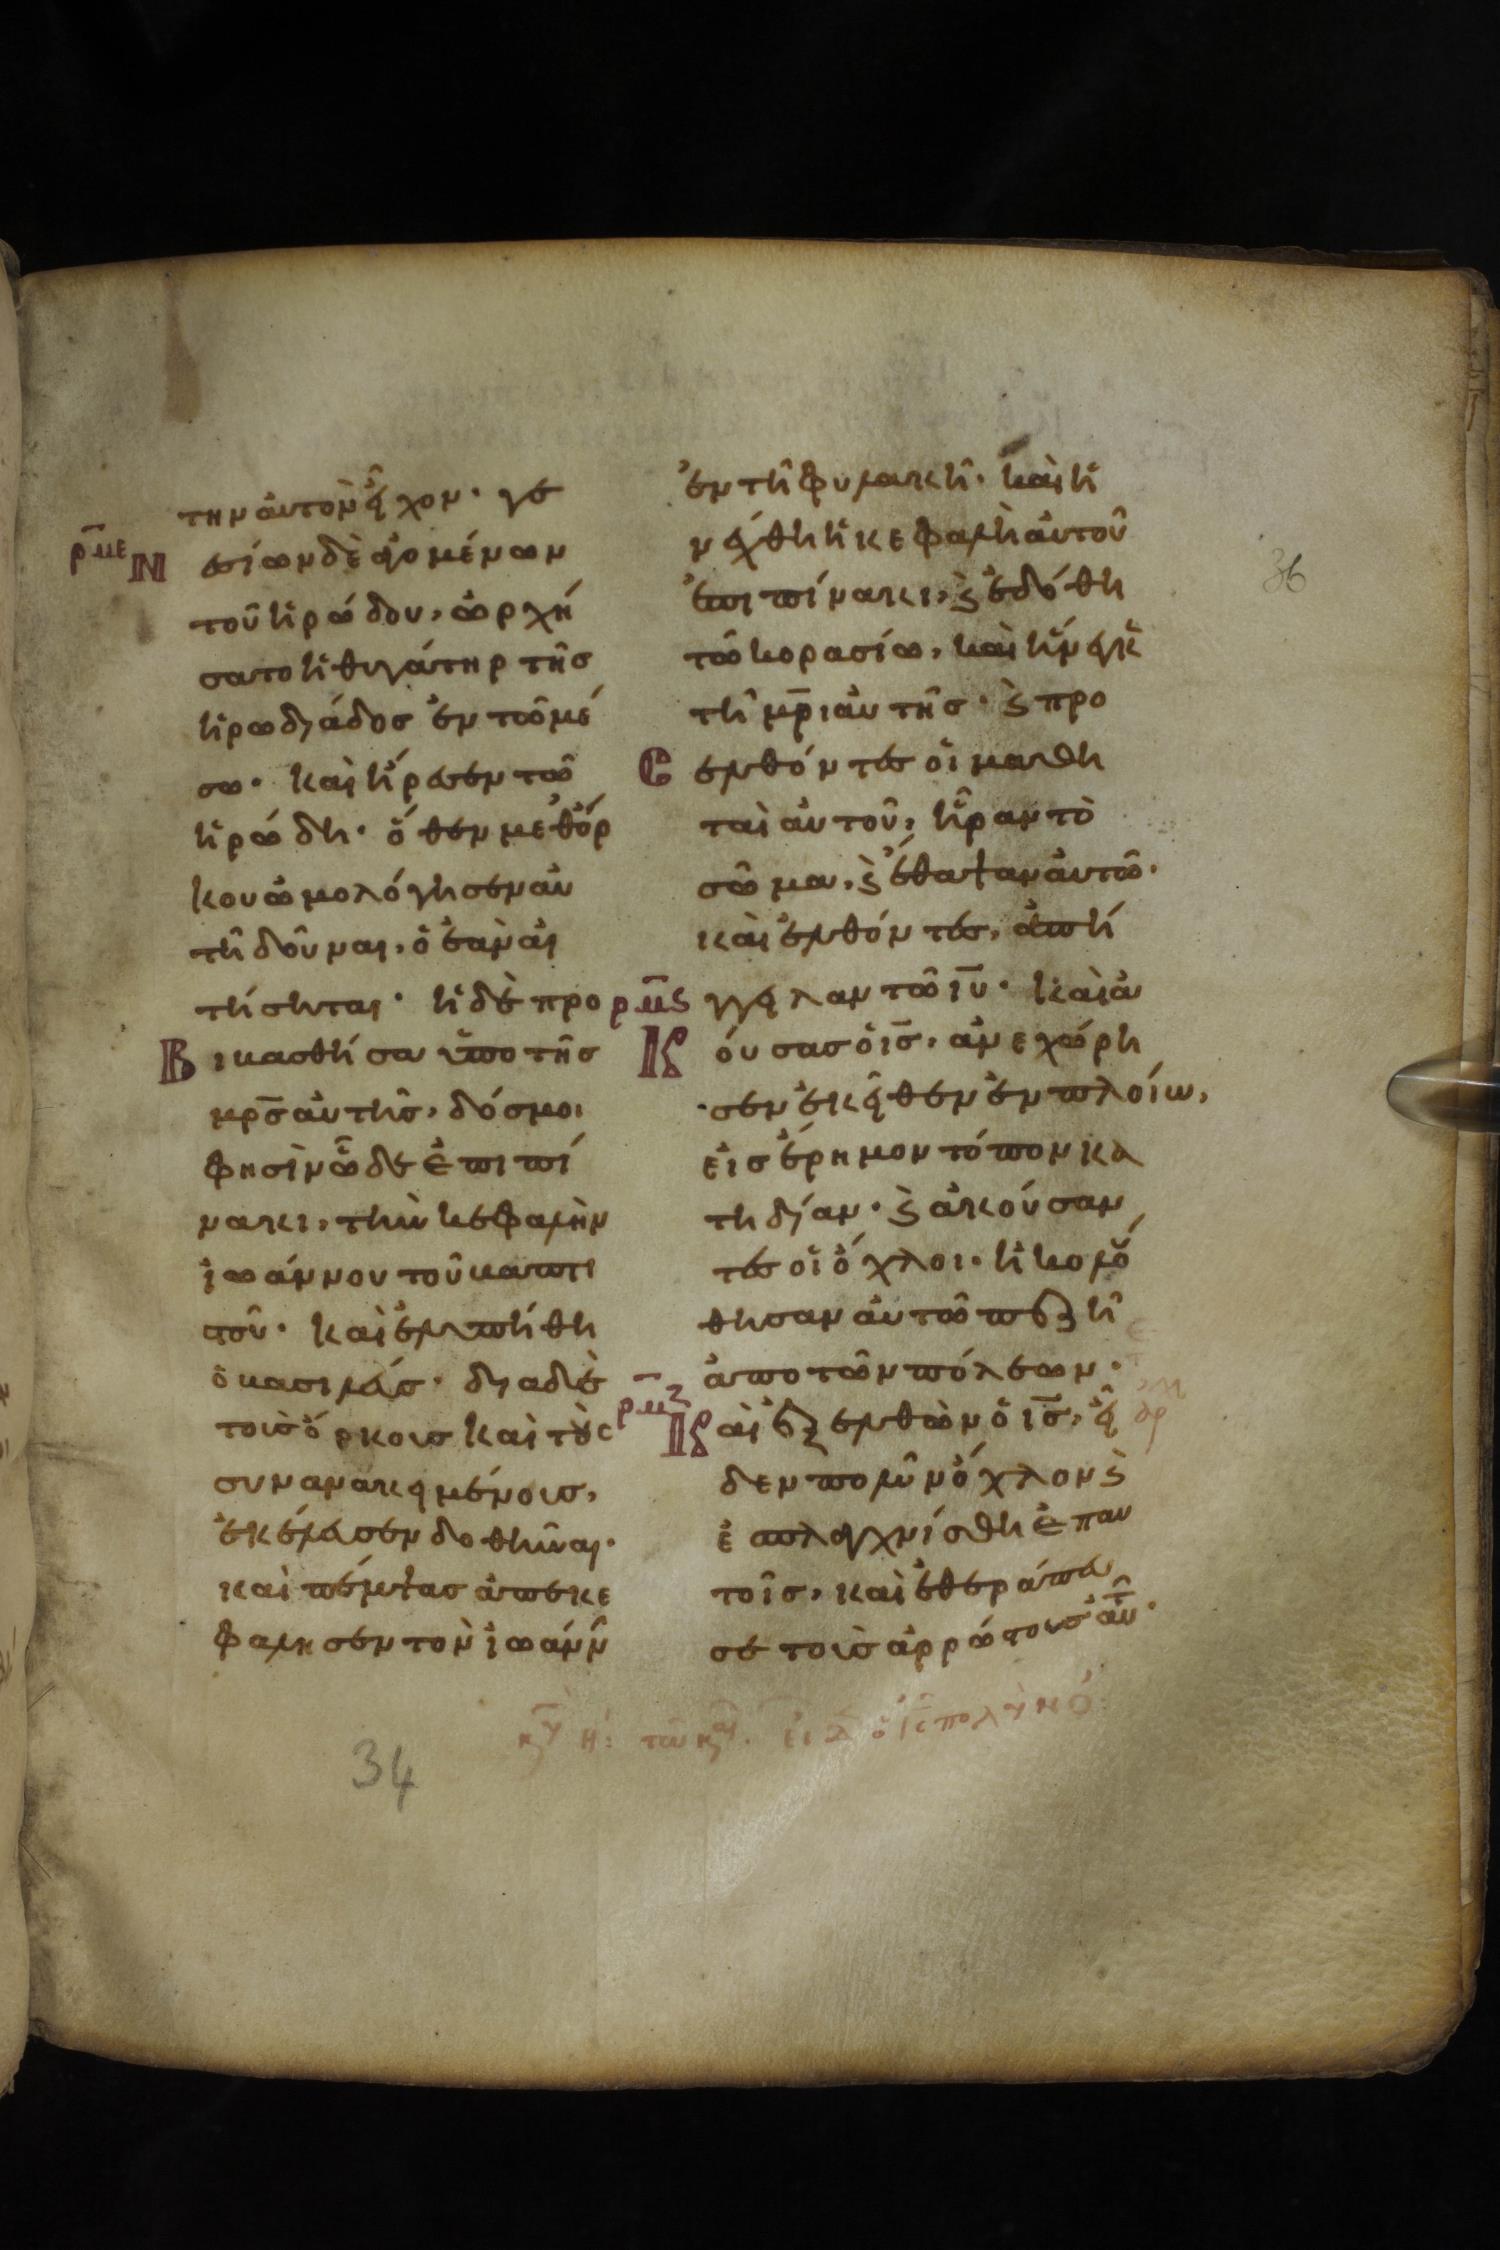 την ἀυτὸν εἶχον· γε
ρμε Ν εσίων δὲ ἀγομένων
τοῦ ἡρώδου, ὠρχή
σατο ἡ θυγάτηρ τῆσ
ἡρωδϊάδοσ ἐν τῶ μέ
σω· καὶ ἤρεσεν τῶ
ἡρώδη· ὅθεν μεθ' ὅρ
κου ὡμολόγησεν αυ
τῆ δοῦναι, ὃ ἐὰν ἀι
τήσηται· ἡ δὲ προ
Βιβασθήσα ὑπο τῆσ
μρσ ἀυτῆσ, δόσ μοι
φησὶν ὧδε ἐπι πί
νακι, τὴν κεφαλὴν
ἰωάννου τοῦ βαπτι
στοῦ· καὶ ἐλυπήθη
ὁ βασιλέυσ· διὰ δὲ
τοὺσ ὅρκουσ καὶ τοὺσ
συνανακειμένουσ,
ἐκέλευσεν δοθῆναι·
καὶ πέμψασ ἀπεκε
φαλησεν τὸν ἰωάνν
ἐν τῆ φυλακῆ· καὶ ἠ
νέχθη ἡ κεφαλὴ ἀυτοῦ
ἐπι πίνακι, ϗ ἐδόθη
τῶ κορασίω, καὶ ἤνεγκε
τῆ μρι ἀυτῆσ· ϗ προ
Ελθόντεσ οἱ μαθη
ταὶ ἀυτοῦ, ἦραν τὸ
σῶμα, ϗ ἔθαψαν ἀυτῶ·
καὶ ἐλθόντεσ, ἀπή
ρμς γγειλαν τῶ ιυ· καὶ ἀ
Κ όυσασ ὁ ισ, ἀνεχώρη
σεν ἐκεῖθεν ἐν πλοίω,
εἰσ ἔρημον τόπον κα
τ ηδίαν· ϗ ἀκούσαν
τεσ οἱ ὄχλοι· ἠκολού
θησαν ἀυτῶ πεζῆ
ἀπο τῶν πόλεων·
ρμζ Καὶ ἐξελθὼν ὁ ισ, εἶ
δεν πολὺν ὄχλον ϗ
ἐσπλαγχνίσθη ἐπ αυ
τοῖσ, καὶ ἐθεράπευ
σε τοὺσ ἀρρώστουσ ἀυτ·
36
34